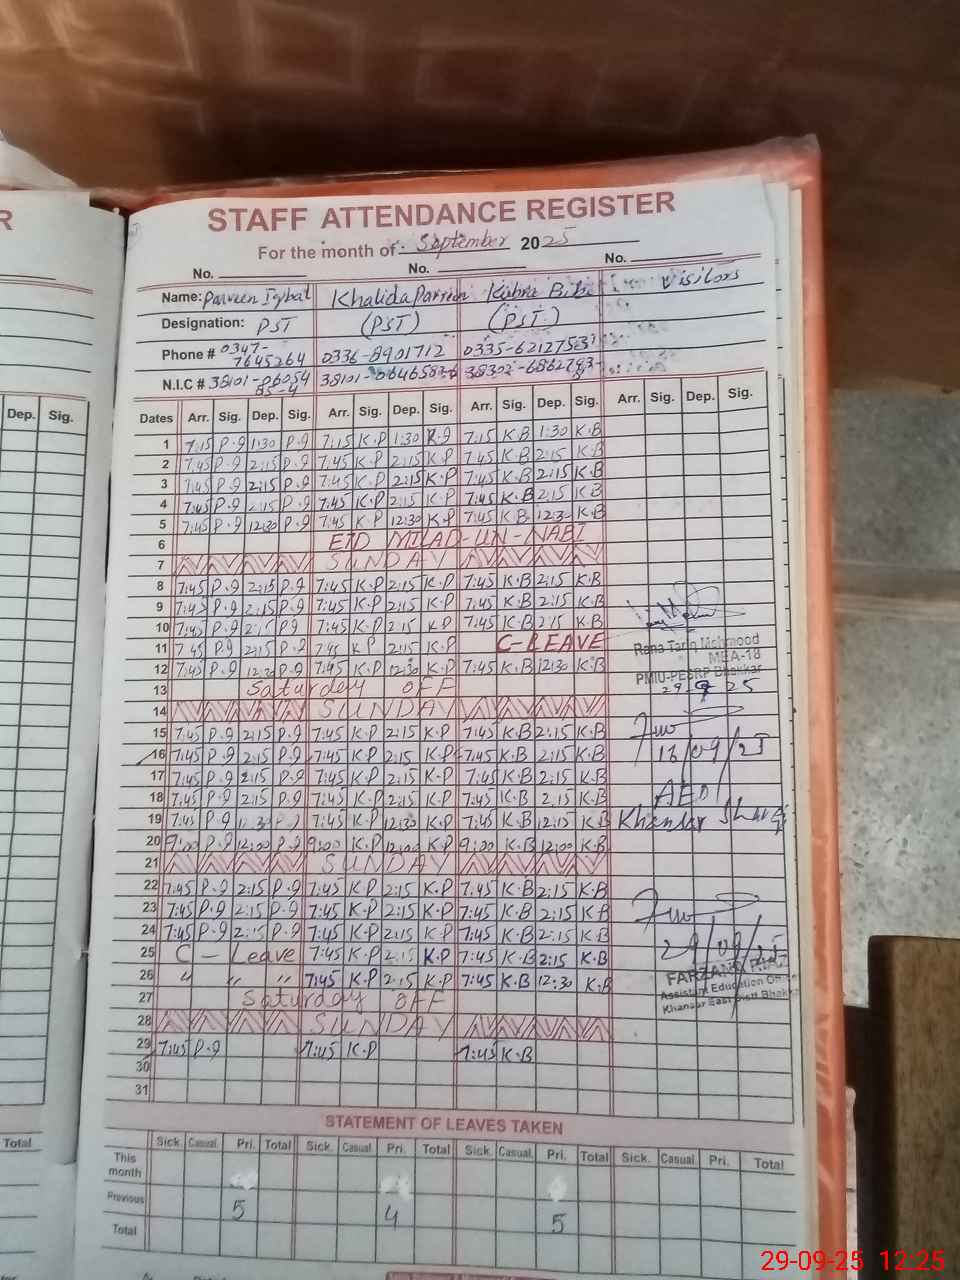 R
STAFF ATTENDANCE REGISTER
For the month of September 2025
No. No. No.
Name: Parveen Iqbal Khalida Parveen Kubra Bibi Visitors
Designation: PST (PST) (PST)
Phone # 0347-7645264 0336-8901712
N.I.C #
Dep. Sig.
Dates Arr. Sig. Dep. Sig. Arr. Sig. Dep. Sig. Arr. Sig. Dep. Sig. Arr. Sig. Dep. Sig.
1 7:15 P.I 1:30 P.I 7:15 K.P 1:30 7:15 K.B 1:30 K.B
2 7:45 P.I 2:15 P.I 7:45 K.P 2:15 K.P 7:45 K.B 2:15 K.B
3 7:45 P.I 2:15 P.I 7:45 K.P 2:15 K.P 7:45 K.B 2:15 K.B
4 7:45 P.I 2:15 P.I 7:45 K.P 2:15 K.P 7:45 K.B 2:15 K.B
5 7:45 P.I 12:30 P.I 7:45 K.P 12:30 K.P 7:45 K.B 12:30 K.B
6 EID MILAD-UN-NABI
7 SUNDAY
8 7:45 P.I 2:15 P.I 7:45 K.P 2:15 K.P 7:45 K.B 2:15 K.B
9 7:45 P.I 2:15 P.I 7:45 K.P 2:15 K.P 7:45 K.B 2:15 K.B
10 7:45 P.I 2:15 P.I 7:45 K.P 2:15 K.P 7:45 K.B 2:15 K.B
11 7:45 P.I 2:15 P.I 7:45 K.P 2:15 K.P C-LEAVE
Rana Tariq Mehmood
MEA-18
12 7:45 P.I 12:30 P.I 7:45 K.P 12:30 K.P 7:45 K.B 12:30 K.B
PMIU-PESRP Bhakkar
13 Saturday OFF
29-9-25
14 SUNDAY
15 7:45 P.I 2:15 P.I 7:45 K.P 2:15 K.P 7:45 K.B 2:15 K.B
16 7:45 P.I 2:15 P.I 7:45 K.P 2:15 K.P 7:45 K.B 2:15 K.B
16/09/25
17 7:45 P.I 2:15 P.I 7:45 K.P 2:15 K.P 7:45 K.B 2:15 K.B
18 7:45 P.I 2:15 P.I 7:45 K.P 2:15 K.P 7:45 K.B 2.15 K.B
AEO
19 7:45 P.I 12:30 P.I 7:45 K.P 12:30 K.P 7:45 K.B 12:15 K.B
Khansar
20 9:00 P.I 12:00 P.I 9:00 K.P 12:00 K.P 9:00 K.B 12:00 K.B
21 SUNDAY
22 7:45 P.I 2:15 P.I 7:45 K.P 2:15 K.P 7:45 K.B 2:15 K.B
23 7:45 P.I 2:15 P.I 7:45 K.P 2:15 K.P 7:45 K.B 2:15 K.B
24 7:45 P.I 2:15 P.I 7:45 K.P 2:15 K.P 7:45 K.B 2:15 K.B
29/09/25
25 C - Leave 7:45 K.P 2:15 K.P 7:45 K.B 2:15 K.B
FARZANA
Assistant Education Officer
26 " " " 7:45 K.P 2:15 K.P 7:45 K.B 12:30 K.B
Khansar East Distt Bhakkar
27 Saturday OFF
28 SUNDAY
29 7:45 P.I 7:45 K.P 7:45 K.B
30
31
STATEMENT OF LEAVES TAKEN
Total
Sick. Casual. Pri. Total Sick. Casual. Pri. Total Sick. Casual. Pri. Total Sick. Casual. Pri. Total
This month
Previous 5 4 5
Total
29-09-25 12:25